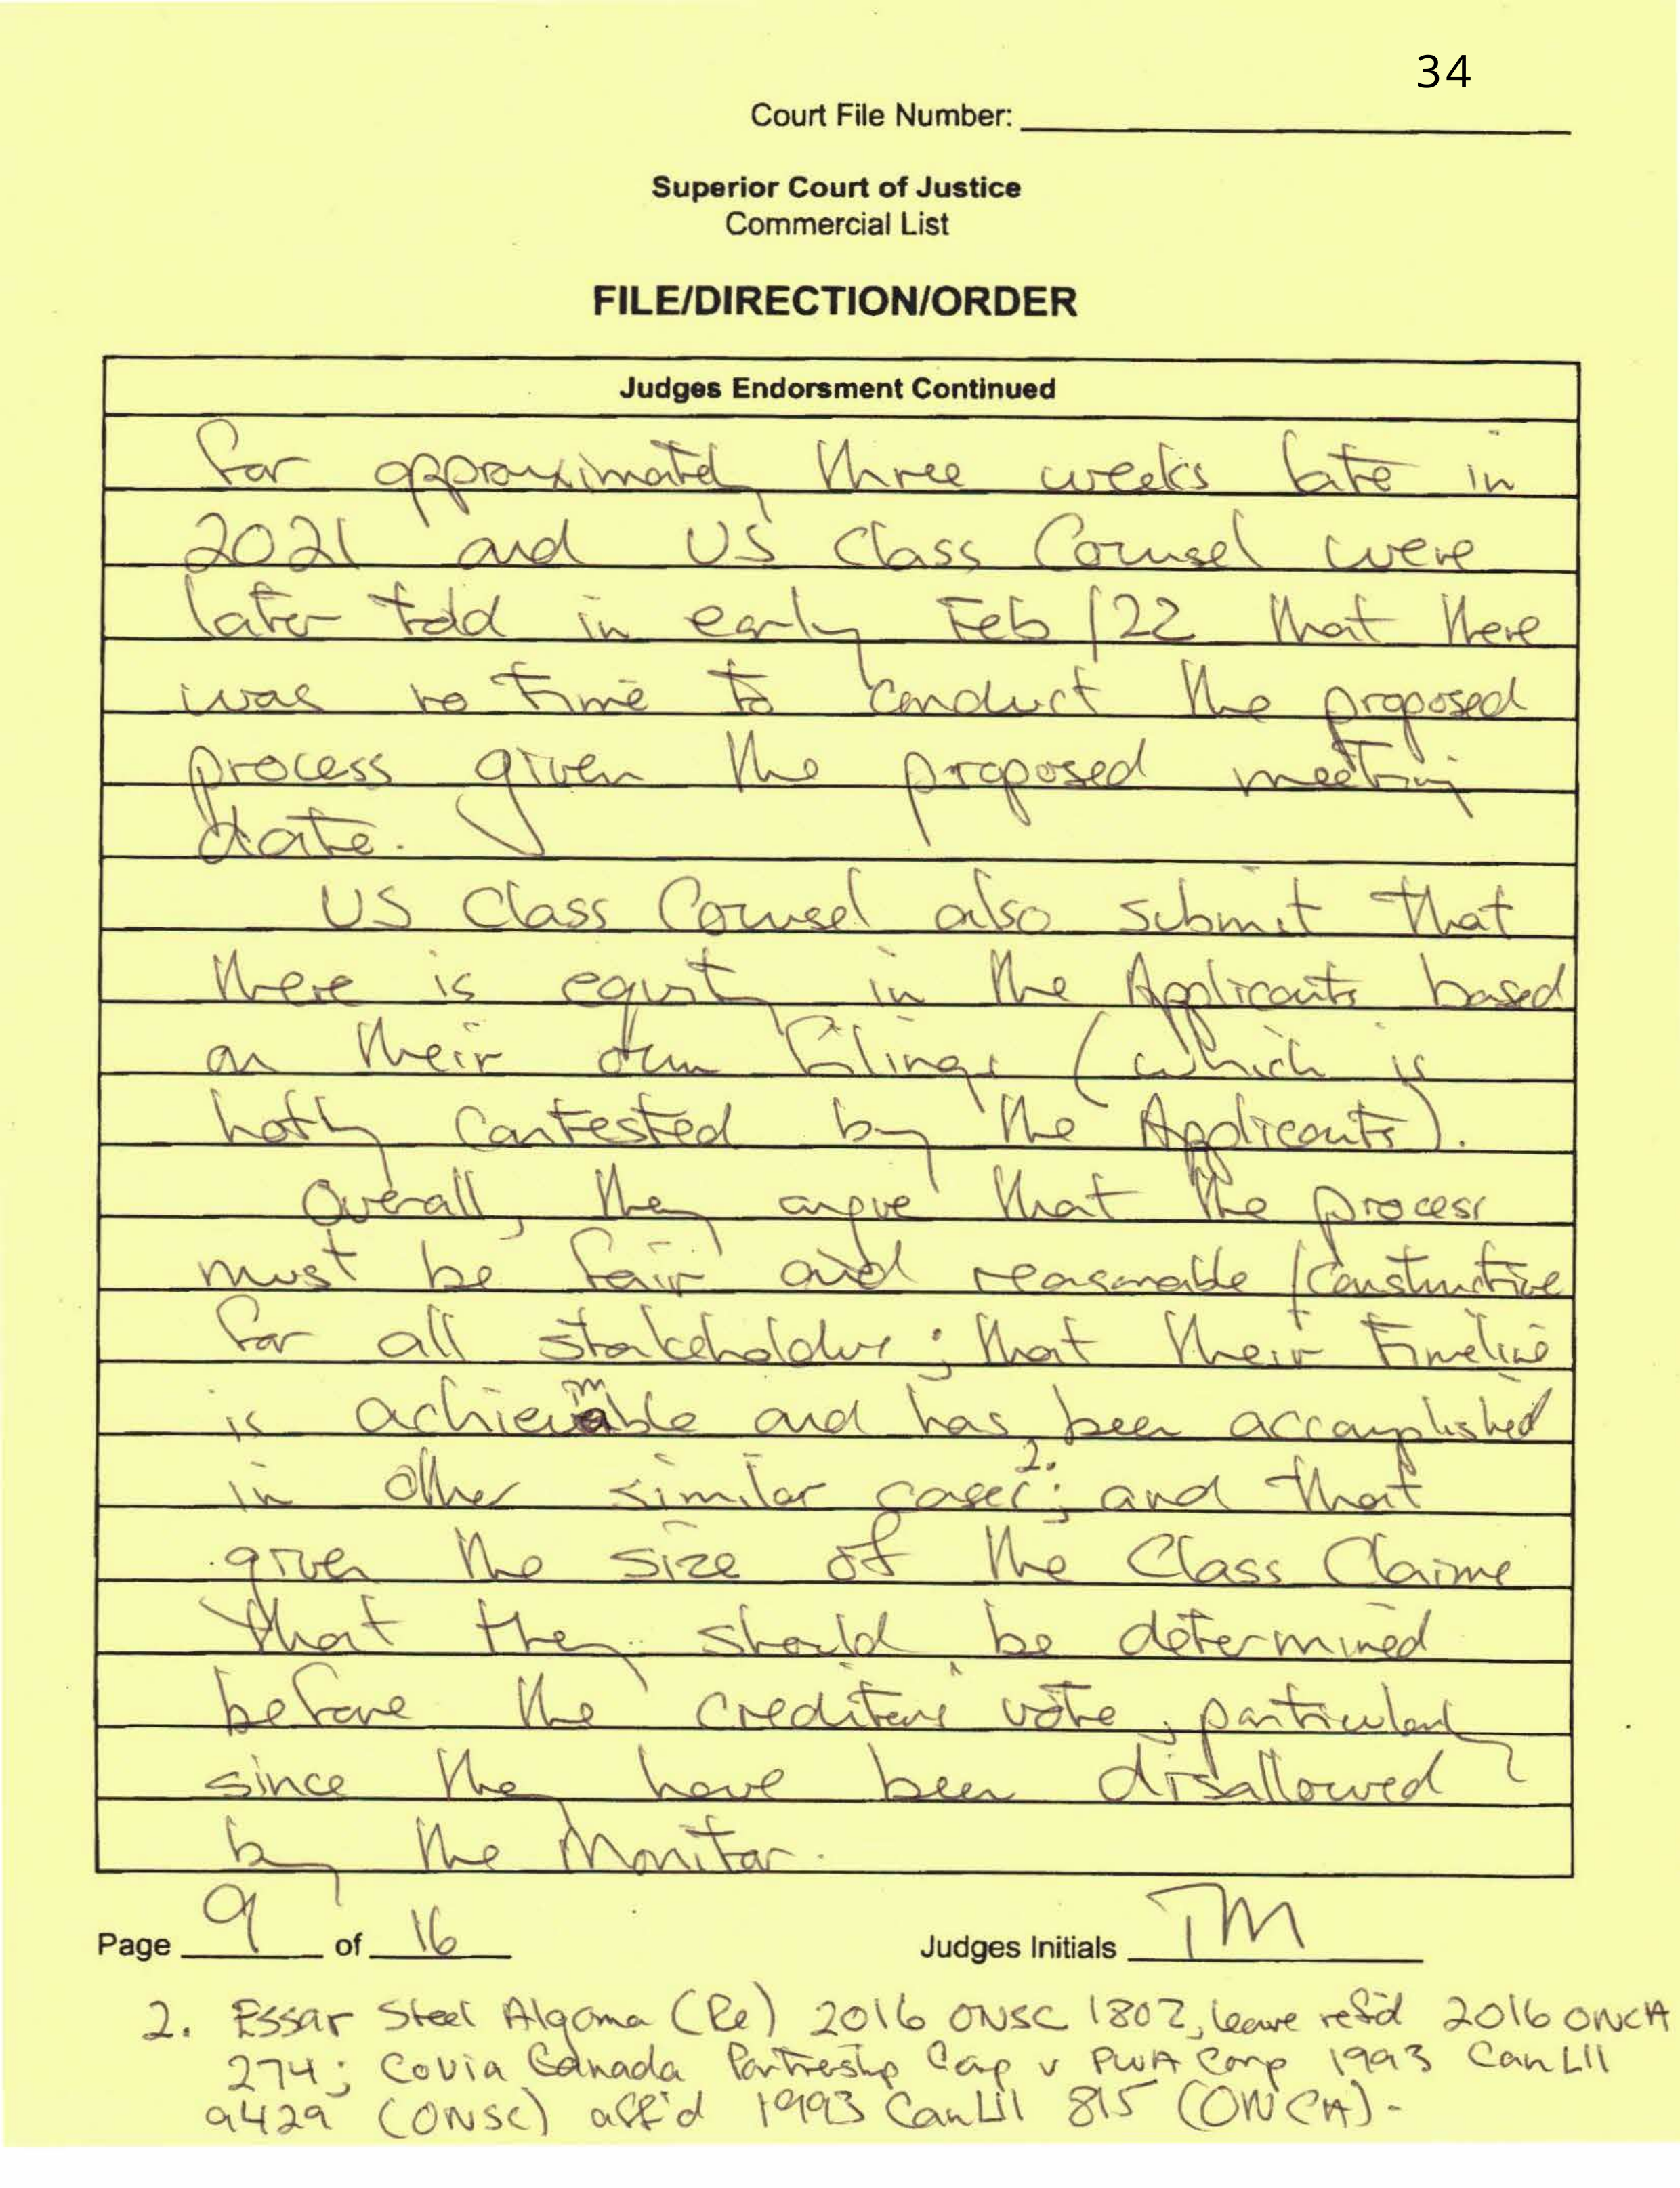 34
Court File Number:
Superior Court of Justice
Commercial List
FILE/DIRECTION/ORDER
Judges Endorsment Continued
for approximately three weeks late in
2021 and US Class Counsel were
later told in early Feb/22 that there
was no time to conduct the proposed
process given the proposed meeting
date.
US Class Counsel also submit that
there is equity in the Applicants based
on their own filings (which is
hotly contested by the Applicants).
Overall, they argue that the process
must be fair and reasonable/constructive
for all stakeholders; that their timeline
is achievable and has been accomplished
in other similar cases 2.; and that
given the size of the Class Claims
that they should be determined
before the creditors' vote, particularly
since they have been disallowed
by the Monitor.
Page 9 of 16 Judges Initials TM
2. Essar Steel Algoma (Re) 2016 ONSC 1802, leave ref'd 2016 ONCA
274; Covia Canada Partnership Corp v PWA Corp 1993 CanLII
9429 (ONSC) aff'd 1993 CanLII 815 (ONCA).